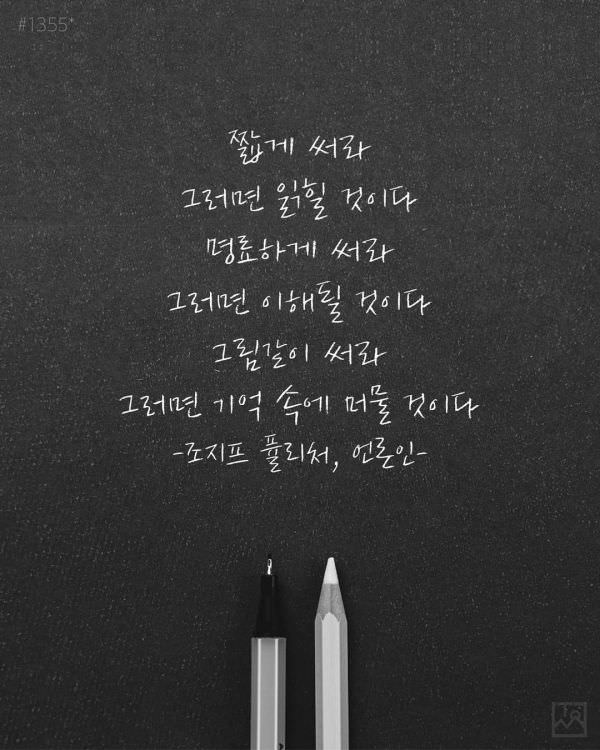 #1355*
짧게 써라
그러면 읽힐 것이다
명료하게 써라
그러면 이해될 것이다
그림같이 써라
그러면 기억 속에 머물 것이다
-조지프 퓰리처, 언론인-